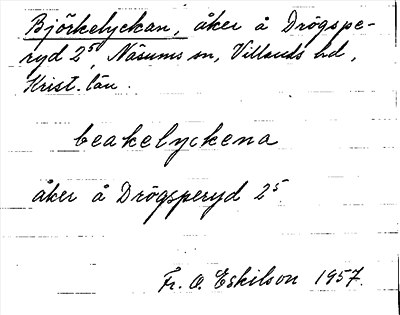 Björkelyckan, åker å Drögspe-
ryd 2⁵, Näsums sn, Villands hd,
Krist. län.
beakelyckena
åker å Drögsperyd 2⁵.
Fr. O. Eskilson 1957.